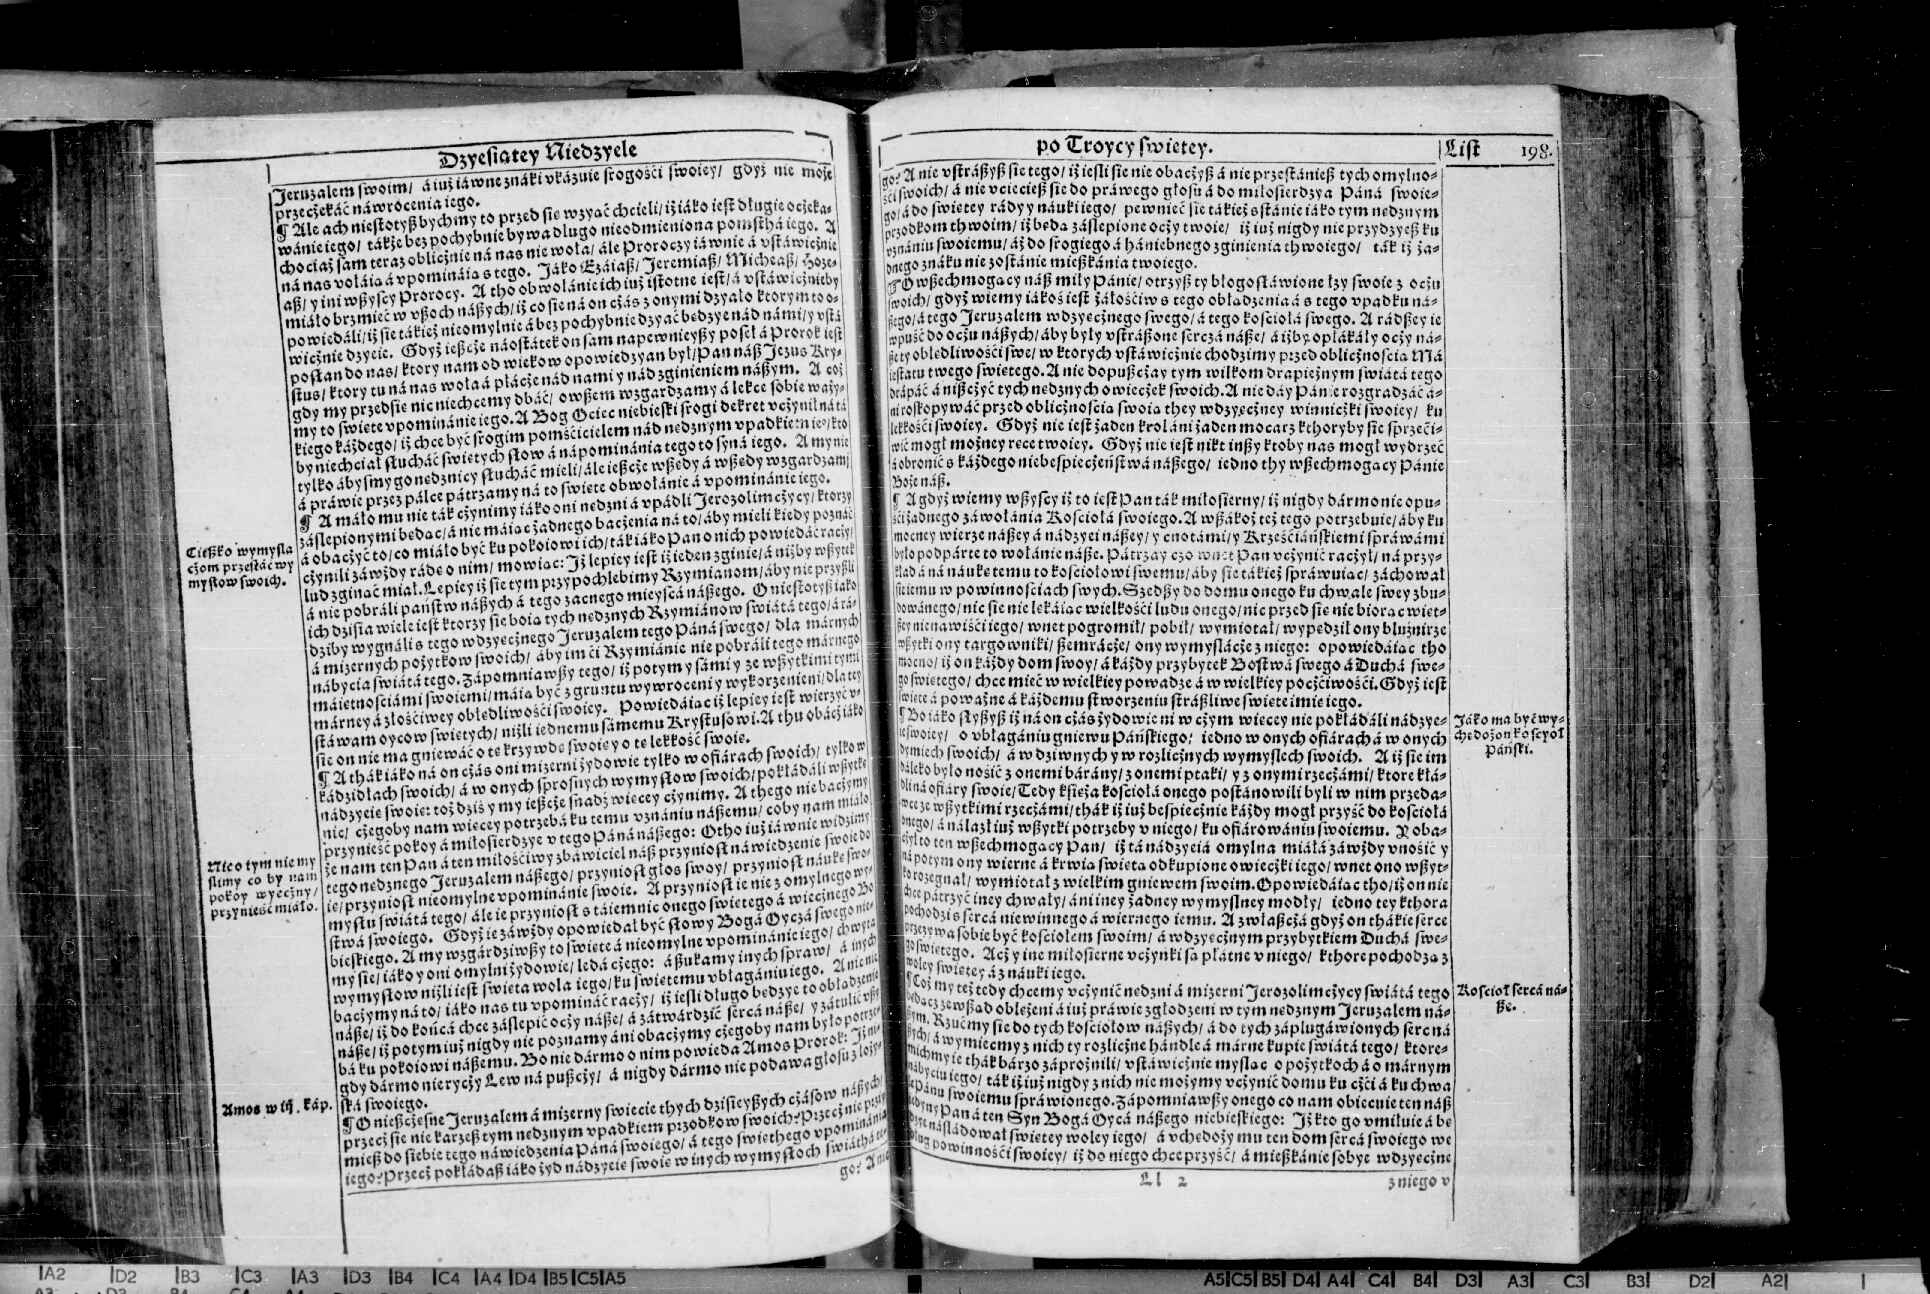 Dzyesiątey Niedzyele
Jeruzalem swoim / á iuż iáwne znáki vkázuie srogości swoiey / gdyż nie może
przeczekáć náwrocenia iego.
¶ Ale ach niestotyß bychmy to przed się wzyąć chcieli / iż iáko iest długie oczeka-
wánie iego / tákże bez pochybnie bywa długo nieodmieniona pomsthá iego. A
chociaż sam teraz oblicżnie ná nas nie woła / ále Proroczy iáwnie á vstáwicżnie
ná nas woláią á vpomináią s tego. Jáko Ezáiaß / Jeremiaß / Micheaß / Hoze-
aß / y ini wßyscy Prorocy. A tho obwołánie ich iuż istotne iest / á vstáwicżnieby
miáło brzmieć w vßoch náßych / iż co sie ná on cżás z onymi dzyało ktorym to o-
powiedáli / iż sie tákież nieomylnie á bez pochybnie dzyać będzye nád námi / y vstá
wicżnie dzyeie. Gdyż ießcże náostátek on sam napewnieyßy poseł á Prorok iest
posłan do nas / ktory nam od wiekow opowiedzyan był / Pan náß Jezus Kry-
stus / ktory tu ná nas woła á płácże nád námi y nád zginieniem náßym. A coż
gdy my przedsię nic niechcemy dbáć / owßem wzgardzamy á lekce sobie waży-
my to święte vpominánie iego. A Bog Ociec niebieski srogi dekret vcżynił ná tá
kiego káżdego / iż chce być srogim pomścicielem nád nędznym vpadkiem ie° / kto
by niechciał słucháć świętych słow á nápominánia tego to syná iego. A my nie
tylko ábysmy go nędznicy słucháć mieli / ále ießcże wßędy á wßędy wzgardzamy
á práwie przez pálce pátrzamy ná to święte obwołánie á vpominánie iego.
¶ A máło mu nie ták cżynimy iáko oni nędzni á vpádli Jerozolimcżycy / ktorzy
záslepionymi będąc / á nie máiąc żadnego bacżenia ná to / áby mieli kiedy poznáć
á obacżyć to / co miáło być ku pokoiowi ich / ták iáko Pan o nich powiedáć racży /
cżynili záwżdy rádę o nim / mowiąc: Jż lepiey iest iż ieden zginie / á niżby wßytek
lud zginąć miał. Lepiey iż sie tym przypochlebimy Rzymianom / áby nie przyßli
á nie pobráli państw náßych á tego zacnego mieyscá náßego. O niestotyß iáko
ich dzisia wiele iest ktorzy sie boią tych nędznych Rzymiánow świátá tego / á rá-
dziby wygnáli s tego wdzyęcżnego Jeruzalem tego Páná swego / dla márnych
á mizernych pożytkow swoich / áby im ci Rzymiánie nie pobráli tego márnego
nábycia świátá tego. Zápomniawßy tego / iż potym y sámi y ze wßytkimi tymi
máiętnościámi swoiemi / máią być z gruntu wywroceni y wykorzenieni / dla tey
márney á złośćiwey obłędliwości swoiey. Powiedáiąc iż lepiey iest wierzyć v-
stáwam oycow świętych / niżli iednemu sámemu Krystusowi. A thu obacż iáko
sie on nie ma gniewáć o tę krzywdę swoię y o tę lekkość swoię.
¶ A thák iáko ná on cżás oni mizerni żydowie tylko w ofiárách swoich / tylko w
kádzidłach swoich / á w onych sprosnych wymysłow swoich / pokładáli wßytkę
nádzyeię swoię: toż dziś y my ießcże snadź więcey cżynimy. A thego nie bacżymy
nic / cżegoby nam więcey potrzebá ku temu vznániu náßemu / coby nam miáło
przynieść pokoy á miłosierdzye v tego Páná náßego: Otho iuż iáwnie widzimy
że nam ten Pan á ten miłościwy zbáwiciel náß przyniosł náwiedzenie swoie do
tego nędznego Jeruzalem náßego / przyniosł głos swoy / przyniosł náukę swo-
ię / przyniosł nieomylne vpominánie swoie. A przyniosł ie nie z omylnego wy-
mysłu świátá tego / ále ie przyniosł s táiemnic onego świętego á wiecżnego Bo
stwá swoiego. Gdyż ie záwżdy opowiedał być słowy Bogá Oycá swego nie-
bieskiego. A my wzgárdziwßy to święte á nieomylne vpominánie iego / chwytá
my sie / iáko y oni omylni żydowie / ledá cżego: á ßukamy inych spraw / á inych
wymysłow niżli iest święta wola iego / ku świętemu vbłagániu iego. A nic nie
bacżymy ná to / iáko nas tu vpomináć racży / iż iesli długo będzye to obłądzenie
náße / iż do końcá chce záslepić ocży náße / á zátwárdzić sercá náße / y zátulić vßy
náße / iż potym iuż nigdy nie poznamy áni obacżymy cżegoby nam było potrze-
bá ku pokoiowi náßemu. Bo nie dármo o nim powieda Amos Prorok: Jż ni-
gdy dármo nie rycży Lew ná pußcży / á nigdy dármo nie podawa głosu z łoży-
ská swoiego.
¶ O nießcżęsne Jeruzalem á mizerny świecie thych dzisieyßych cżásow náßych /
przecż sie nie karzeß tym nędznym vpadkiem przodkow swoich? Przecż nie przy
mieß do siebie tego náwiedzenia Páná swoiego / á tego świethego vpominánia
iego? Przecż pokładaß iáko żyd nádzyeię swoię w inych wymysłoch świáthá te-
go? A nie
Cięßko wymysla
cżom przestáć wy
mysłow swoich.
Nic o tym nie my
slimy co by nam
pokoy wyecżny /
przynieść miáło.
Amos w iij. káp.
po Troycy świętey.
List 198.
go? A nie vstráßyß sie tego / iż iesli sie nie obacżyß á nie przestánieß tych omylno-
ści swoich / á nie vciecieß sie do práwego głosu á do miłosierdzya Páná swoie-
go / á do świętey rády y náuki iego / pewnieć sie tákież sstánie iáko tym nędznym
przodkom thwoim / iż będą záslepione ocży twoie / iż iuż nigdy nie przydzyeß ku
vznániu swoiemu / áż do srogiego á hániebnego zginienia thwoiego / ták iż ża-
dnego znáku nie zostánie mießkánia twoiego.
¶ O wßechmogący náß miły Pánie / otrzyß ty błogosłáwione łzy swoie z ocżu
swoich / gdyż wiemy iákoś iest żáłościw s tego obłądzenia á s tego vpadku ná-
ßego / á tego Jeruzalem wdzyęcżnego swego / á tego kościołá swego. A rádßey ie
wpuść do ocżu náßych / áby były vstráßone sercá náße / á iżby opłákáły ocży ná-
ße ty obłędliwości swe / w ktorych vstáwicżnie chodzimy przed oblicżnoscią Má
iestatu twego świętego. A nie dopußcżay tym wilkom drapieżnym świátá tego
drápáć á nißcżyć tych nędznych owiecżek swoich. A nie day Pánie rozgradzáć á-
ni roskopywáć przed oblicżnoscią swoią they wdzyęcżney winnicżki swoiey / ku
lekkości swoiey. Gdyż nie iest żaden krol áni żaden mocarz kthoryby sie sprzeći-
wić mogł możney ręce twoiey. Gdyż nie iest nikt inßy ktoby nas mogł wydrzeć
á obronić s káżdego niebespiecżeństwá náßego / iedno thy wßechmogący Pánie
Boże náß.
¶ A gdyż wiemy wßyscy iż to iest Pan ták miłosierny / iż nigdy dármo nie opu-
ści żadnego záwołánia Kościołá swoiego. A wßákoż też tego potrzebuie / áby ku
mocney wierze náßey á nádzyei náßey / y cnotámi / y Krześciáńskiemi spráwámi
było podpárte to wołánie náße. Pátrzay czo wnet Pan vcżynić racżył / ná przy-
kład á ná náukę temu to kościołowi swemu / áby sie tákież spráwuiąc / záchował
sie iemu w powinnościách swych. Szedßy do domu onego ku chwale swey zbu-
dowánego / nic sie nie lękáiąc wielkości ludu onego / nic przed się nie biorąc więt-
ßey nienawiści iego / wnet pogromił / pobił / wymiotał / wypędził ony bluźnirze
wßytki ony tárgowniki / ßemrácże / ony wymyslácże z niego: opowiedáiąc tho
mocno / iż on káżdy dom swoy / á káżdy przybytek Bostwá swego á Duchá świę-
go świętego / chce mieć w wielkiey powadze á w wielkiey pocżciwości. Gdyż iest
święte á poważne á káżdemu stworzeniu strászliwe święte imię iego.
¶ Bo iáko słyßyß iż ná on cżás żydowie ni w cżym więcey nie pokłádáli nádzye-
ie swoiey / o vbłagániu gniewu Páńskiego / iedno w onych ofiárach á w onych
dymiech swoich / á w dziwnych y w rozlicżnych wymyslech swoich. A iż sie im
dáleko było nosić z onemi bárány / z onemi ptaki / y z onymi rzecżámi / ktore kłá-
dli ná ofiáry swoie / Tedy księża kościołá onego postánowili byli w nim przeda-
wce ze wßytkimi rzecżámi / thák iż iuż bespiecżnie káżdy mogł przyść do kościołá
onego / á nálazł iuż wßytki potrzeby v niego / ku ofiárowániu swoiemu. Y oba-
cżył to ten wßechmogący Pan / iż tá nádzyeiá omylna miáłá záwżdy vnosić y
ná potym ony wierne á krwią świętą odkupione owiecżki iego / wnet ono wßyt-
ko rozegnał / wymiotał z wielkim gniewem swoim. Opowiedáiąc tho / iż on nie
chce pátrzyć iney chwały / áni iney żadney wymyslney modły / iedno tey kthora
pochodzi s sercá niewinnego á wiernego iemu. A zwłaßcżá gdyż on thákie serce
przezywa sobie być kościołem swoim / á wdzyęcżnym przybytkiem Duchá świę-
go świętego. Acż y ine miłosierne vcżynki są płátne v niego / kthore pochodzą z
woley świętey á z náuki iego.
¶ Coż my też tedy chcemy vcżynić nędzni á mizerni Jerozolimcżycy świátá tego
będąc ze wßad oblężeni á iuż práwie zgłodzeni w tym nędznym Jeruzalem ná-
ßym. Rzućmy sie do tych kościołow náßych / á do tych záplugáwionych serc ná
ßych / á wymiećmy z nich ty rozlicżne hándle á márne kupie świátá tego / ktore-
michmy ie thák bárzo záprożnili / vstáwicżnie mysląc o pożytkoch á o márnym
nábyciu iego / ták iż iuż nigdy z nich nie możymy vcżynić domu ku cżci á ku chwa
le Pánu swoiemu spráwionego. Zápomniawßy onego co nam obiecuie ten náß
iedyny Pan á ten Syn Bogá Oycá náßego niebieskiego: Jż kto go vmiłuie á bę
dzye násládował świętey woley iego / á vchędoży mu ten dom sercá swoiego we
dług powinności swoiey / iż do niego chce przyść / á mießkánie sobye wdzyęcżne
Jáko ma być wy-
chędożon kościoł
Páński.
Kościoł sercá ná-
ße.
Ll 2
z niego v
A2 D2 B3 C3 A3 D3 B4 C4 A4 D4 B5 C5 A5
A5 C5 B5 D4 A4 C4 B4 D3 A3 C3 B3 D2 A2